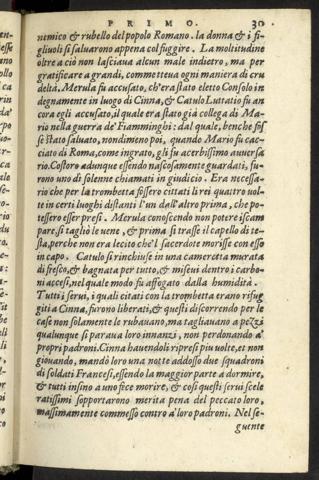 PRIMO. 30
nemico & rubello del popolo Romano. la donna & i fi-
gliuoli si saluarono appena col fuggire. La moltitudine
oltre a ciò non lasciaua alcun male indietro, ma per
gratificare a grandi, commetteua ogni maniera di cru
deltà. Merula fu accusato, ch'era stato eletto Consolo in
degnamente in luogo di Cinna, & Catulo Luttatio fu an
cora egli accusato, il quale era stato già collega di Ma-
rio nella guerra de' Fiamminghi: dal quale, benche fos
se stato saluato, nondimeno poi, quando Mario fu cac-
ciato di Roma, come ingrato, gli fu acerbissimo auuersa
rio. Costoro adunque essendo nascosamente guardati, fu-
rono uno di solenne chiamati in giudicio. Era necessa-
rio che per la trombetta fossero cittati li rei quattro uol-
te in certi luoghi distanti l'un dall'altro prima, che po-
tessero esser presi. Merula conoscendo non potere iscam
pare, si tagliò le uene, & prima si trasse il capello di te-
sta, perche non era lecito che'l sacerdote morisse con esso
in capo. Catulo si rinchiuse in una cameretta murata
di fresco, & bagnata per tutto, & miseui dentro i carbo-
ni accesi, nel quale modo fu affogato dalla humidità.
Tutti i serui, i quali citati con la trombetta erano rifug
giti a Cinna, furono liberati, & questi discorrendo per le
case non solamente le rubauano, ma tagliauano a pezzi
qualunque si paraua loro innanzi, non perdonando a'
propri padroni. Cinna hauendoli ripresi piu uolte, et non
giouando, mandò loro una notte addosso due squadroni
di soldati Francesi, essendo la maggior parte a dormire,
& tutti insino a uno fece morire, & cosi questi serui scele
ratissimi sopportarono merita pena del peccato loro,
massimamente commesso contro a' loro padroni. Nel se-
guente